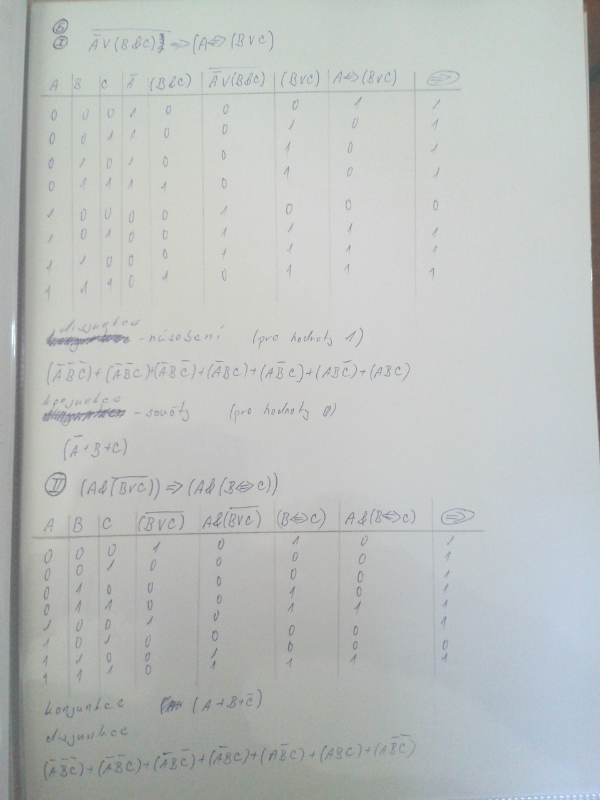 6
I $\overline{\bar{A} \lor (B \& C)} \Rightarrow (A \Leftrightarrow (B \lor C)$
A B C $\bar{A}$ (B&C) $\overline{\bar{A} \lor (B \& C)}$ (B∨C) A⇔(B∨C) ⇒
0 0 0 1 0 0 0 1 1
0 0 1 1 0 0 1 0 1
0 1 0 1 0 0 1 0 1
0 1 1 1 1 0 1 0 1
1 0 0 0 0 1 0 0 0
1 0 1 0 0 1 1 1 1
1 1 0 0 0 1 1 1 1
1 1 1 0 1 0 1 1 1
disjunkce - násobení (pro hodnoty 1)
$(\bar{A}\bar{B}\bar{C}) + (\bar{A}\bar{B}C) + (\bar{A}B\bar{C}) + (\bar{A}BC) + (A\bar{B}C) + (AB\bar{C}) + (ABC)$
konjunkce - součty (pro hodnoty 0)
$(\bar{A} + B + C)$
II $(A \& (\overline{B \lor C})) \Rightarrow (A \& (B \Leftrightarrow C))$
A B C $(\overline{B \lor C})$ $A \& (\overline{B \lor C})$ (B⇔C) A&(B⇔C) ⇒
0 0 0 1 0 1 0 1
0 0 1 0 0 0 0 1
0 1 0 0 0 0 0 1
0 1 1 0 0 1 1 1
1 0 0 1 0
1 0 1 0 0 0 0 1
1 1 0 0 0 0 0 0
1 1 1 0 1 1 1 1
konjunkce $(A + B + \bar{C})$
disjunkce
$(\bar{A}\bar{B}\bar{C}) + (\bar{A}\bar{B}C) + (\bar{A}B\bar{C}) + (\bar{A}BC) + (A\bar{B}C) + (ABC) + (A\bar{B}\bar{C})$